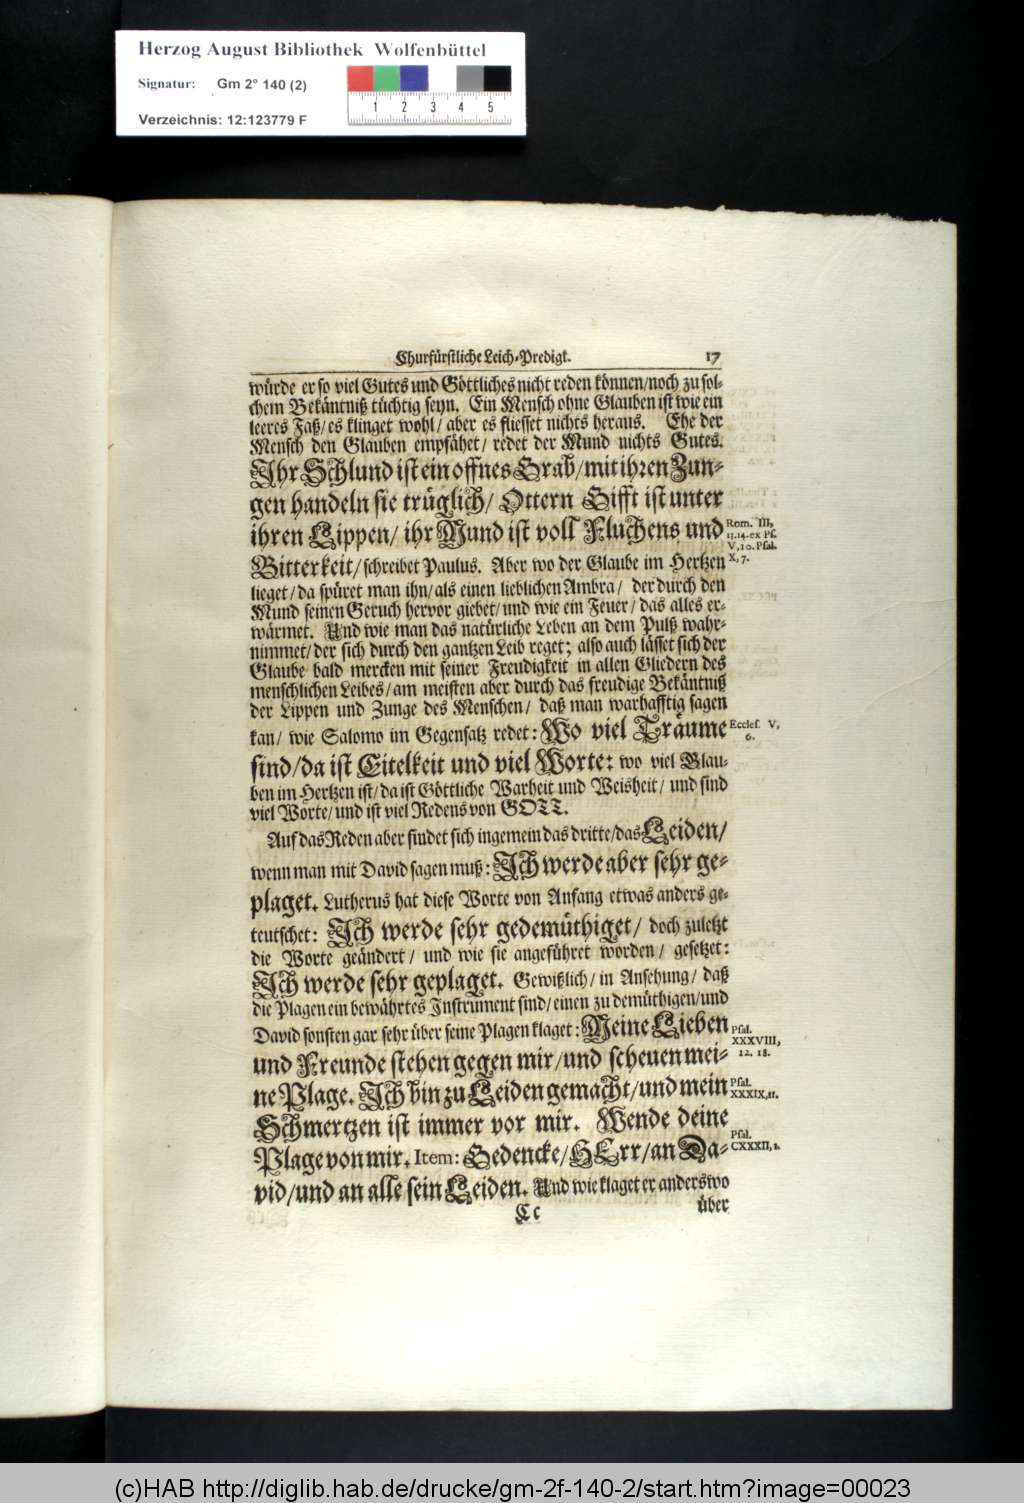 Herzog August Bibliothek Wolfenbüttel
Signatur: Gm 2° 140 (2)
1 2 3 4 5
Verzeichnis: 12:123779 F
Churfürstliche Leich-Predigt. 17
würde er so viel Gutes und Göttliches nicht reden können/noch zu sol-
chem Bekäntniß tüchtig seyn. Ein Mensch ohne Glauben ist wie ein
leeres Faß/es klinget wohl/aber es fliesset nichts heraus. Ehe der
Mensch den Glauben empfähet/redet der Mund nichts Gutes.
Ihr Schlund ist ein offnes Grab/mit ihren Zun-
gen handeln sie trüglich/Ottern Gifft ist unter
ihren Lippen/ihr Mund ist voll Fluchens und
Rom. III,
13.14. ex Ps.
V,10. Psal.
X, 7.
Bitterkeit/schreibet Paulus. Aber wo der Glaube im Hertzen
lieget/da spüret man ihn/als einen lieblichen Ambra/der durch den
Mund seinen Geruch hervor giebet/und wie ein Feuer/das alles er-
wärmet. Und wie man das natürliche Leben an dem Pulß wahr-
nimmet/der sich durch den gantzen Leib reget; also auch lässet sich der
Glaube bald mercken mit seiner Freudigkeit in allen Gliedern des
menschlichen Leibes/am meisten aber durch das freudige Bekäntniß
der Lippen und Zunge des Menschen/daß man warhafftig sagen
kan/wie Salomo im Gegensatz redet: Wo viel Träume
Eccles. V,
6.
sind/da ist Eitelkeit und viel Worte: wo viel Glau-
ben im Hertzen ist/da ist Göttliche Warheit und Weisheit/und sind
viel Worte/und ist viel Redens von GOTT.
Auf das Reden aber findet sich ingemein das dritte/das Leiden/
wenn man mit David sagen muß: Ich werde aber sehr ge-
plaget. Lutherus hat diese Worte von Anfang etwas anders ge-
teutschet: Ich werde sehr gedemüthiget/doch zuletzt
die Worte geändert/und wie sie angeführet worden/gesetzet:
Ich werde sehr geplaget. Gewißlich/in Ansehung/daß
die Plagen ein bewährtes Instrument sind/einen zu demüthigen/und
David sonsten gar sehr über seine Plagen klaget: Meine Lieben
Psal.
XXXVIII,
12. 18.
und Freunde stehen gegen mir/und scheuen mei-
ne Plage. Ich bin zu Leiden gemacht/und mein
Psal.
XXXIX,11.
Schmertzen ist immer vor mir. Wende deine
Plage von mir. Item: Gedencke/HErr/an Da-
Psal.
CXXXII,1.
vid/und an alle sein Leiden. Und wie klaget er anderswo
Cc über
(c)HAB http://diglib.hab.de/drucke/gm-2f-140-2/start.htm?image=00023